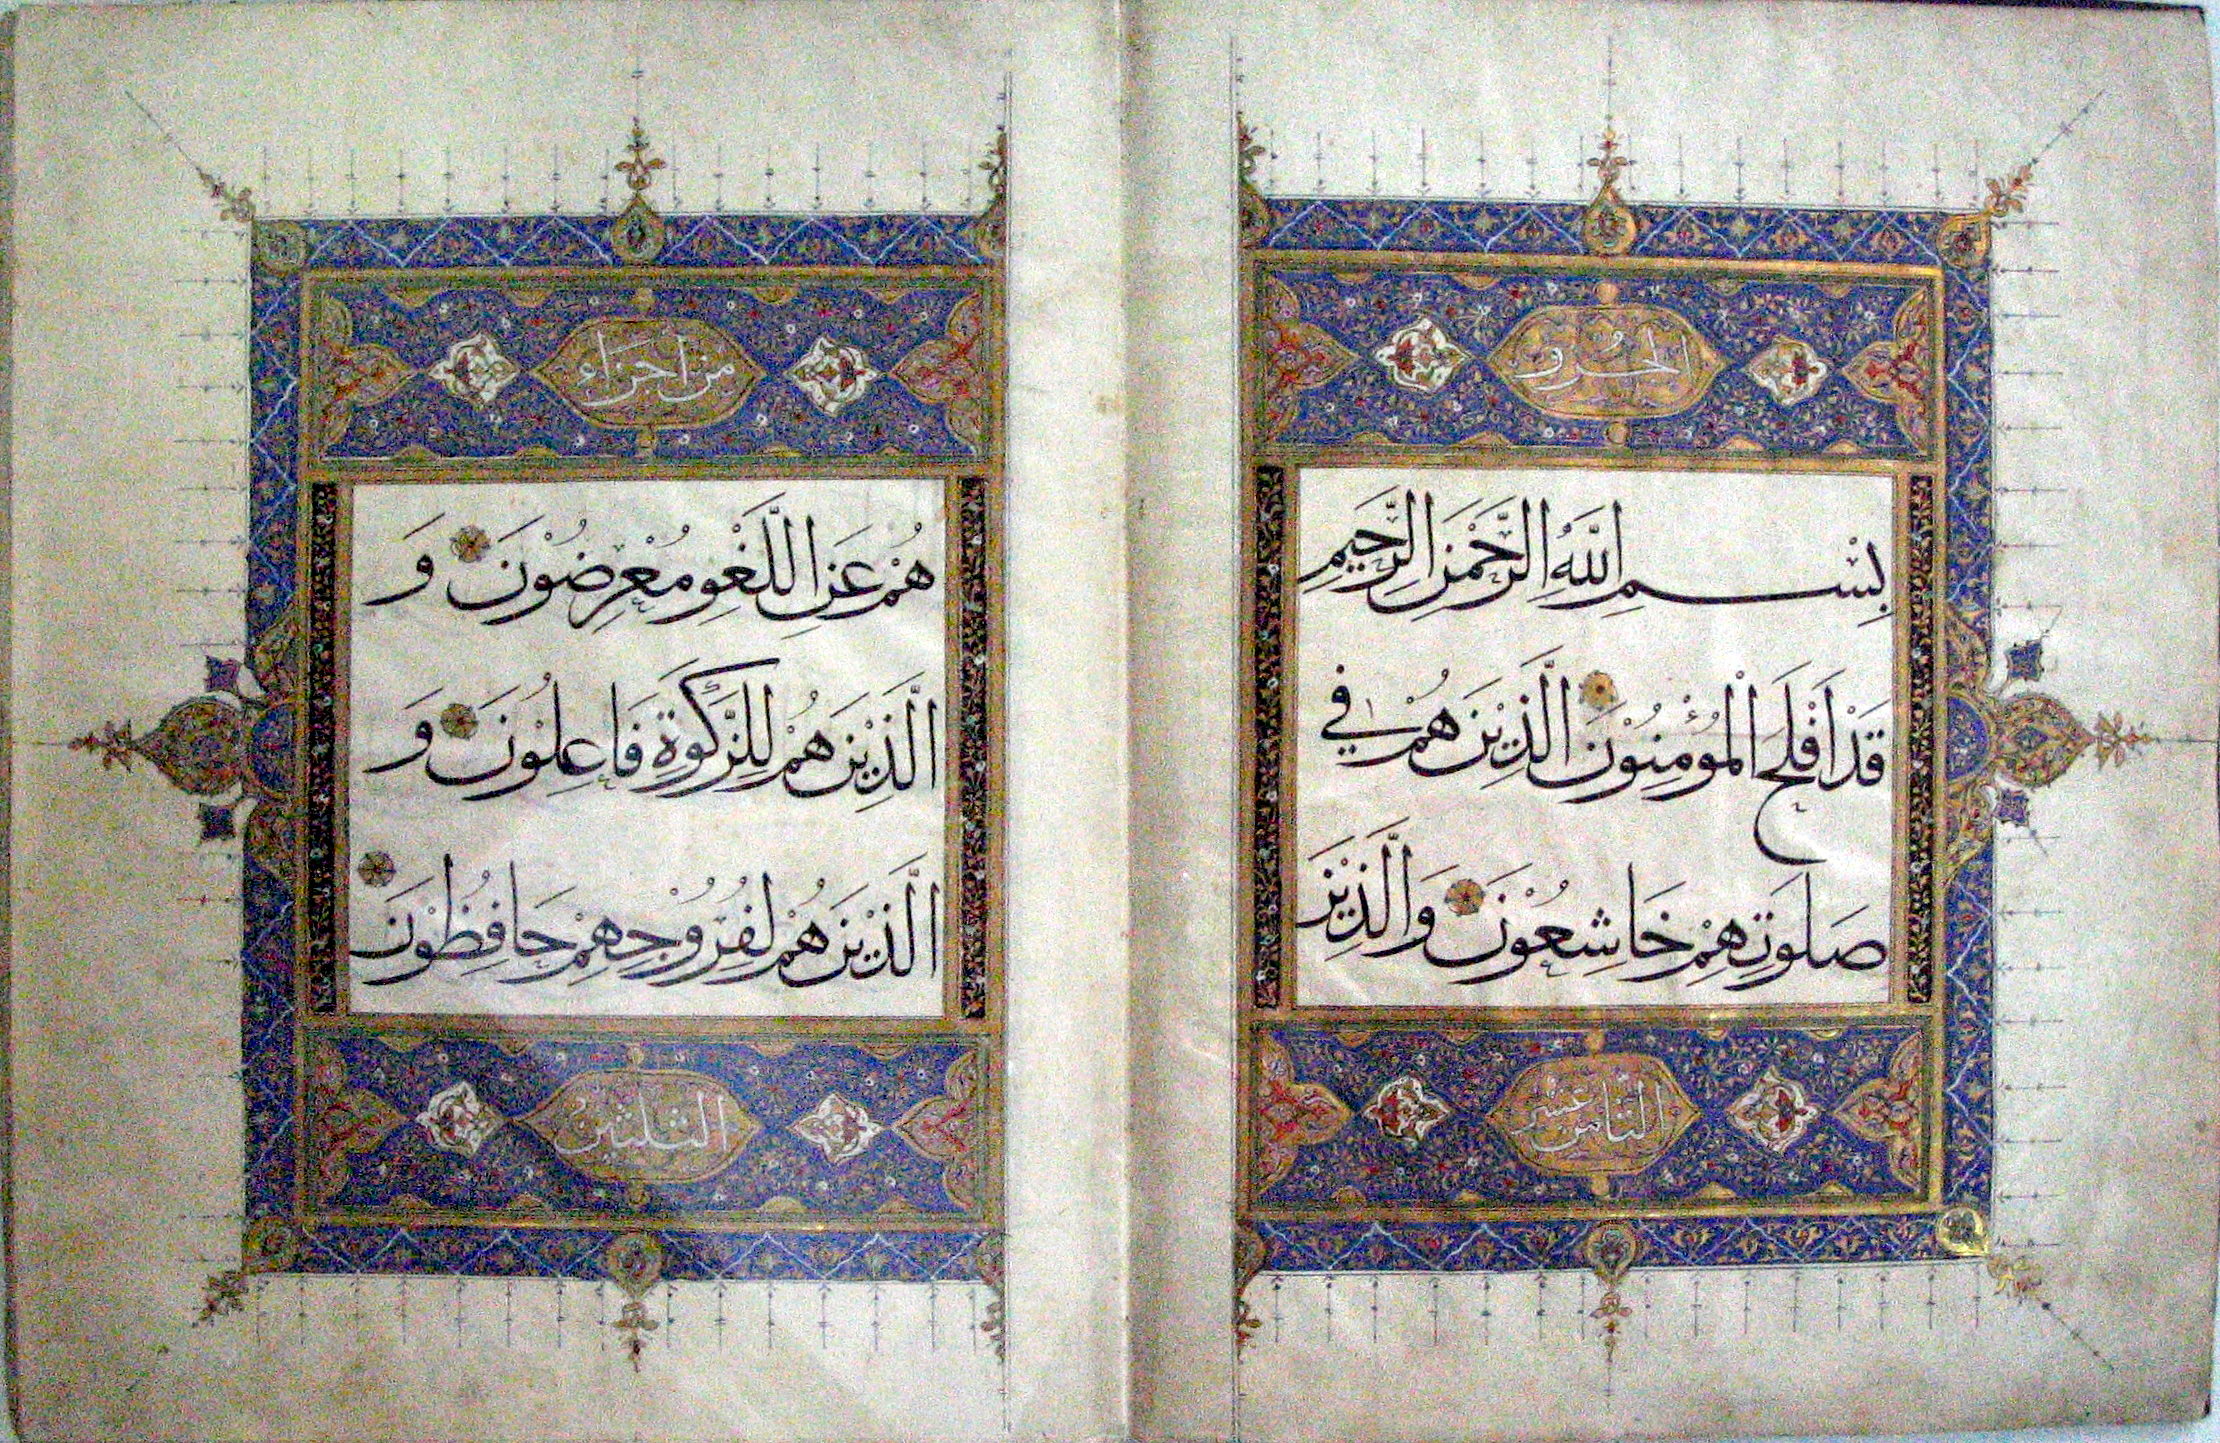 الجزو
بِسْمِ اللَّهِ الرَّحْمَنِ الرَّحِيمِ
قَدْ أَفْلَحَ الْمُؤْمِنُوْنَ الَّذِيْنَ هُمْ فِي
صَلَوتِهِمْ خَاشِعُوْنَ وَالَّذِيْنَ
الثامن عشر
من أجزاء
هُمْ عَنِ اللَّغْوِ مُعْرِضُوْنَ وَ
الَّذِيْنَ هُمْ لِلزَّكَوةِ فَاعِلُوْنَ وَ
الَّذِيْنَ هُمْ لِفُرُوْجِهِمْ حَافِظُوْنَ
الثلثين